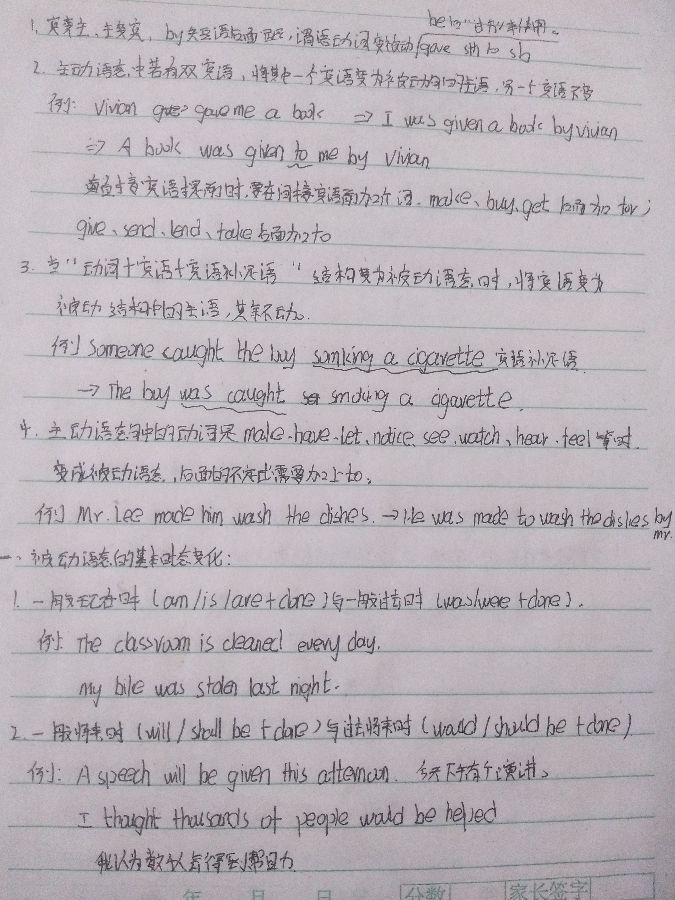 be动词+过去分词 末使用。
1. 宾变主、主变宾, by 短语后面跟, 谓语动词变被动 gave sth to sb
2. 主动语态中若有双宾语, 将其中一个宾语变为被动句的主语, 另一个宾语不变
例: Vivian gave me a book ⇒ I was given a book by vivian
⇒ A book was given to me by Vivian
直接宾语提前时, 要在间接宾语前加个词. make、buy、get 后面加 for;
give、send、lend、take 后面加 to
3. 当"动词+宾语+宾语补足语"结构变为被动语态时, 将宾语变为
被动结构中的主语, 其余不动。
例 Someone caught the buy smking a cigavette 宾语补足语
→ The buy was caught smoking a cigavette.
4. 主动语态句中的动词是 make、have、let、notice、see、watch、hear、feel 等时.
变成被动语态, 后面的不定式需要加上to。
例 Mr. Lee made him wash the dishes. → He was made to wash the dishes by mr.
一、被动语态的基本时态变化:
1. 一般现在时 (am/is/are+done) 与一般过去时 (was/were+done).
例: The classroom is cleaned every day.
My bike was stolen last night.
2. 一般将来时 (will/shall be+done) 与过去将来时 (would/should be+done)
例: A speech will be given this afternoon. 今天下午有个演讲。
I thought thousands of people would be helped
我认为数千人会得到帮助
年 月 日 分数 家长签字